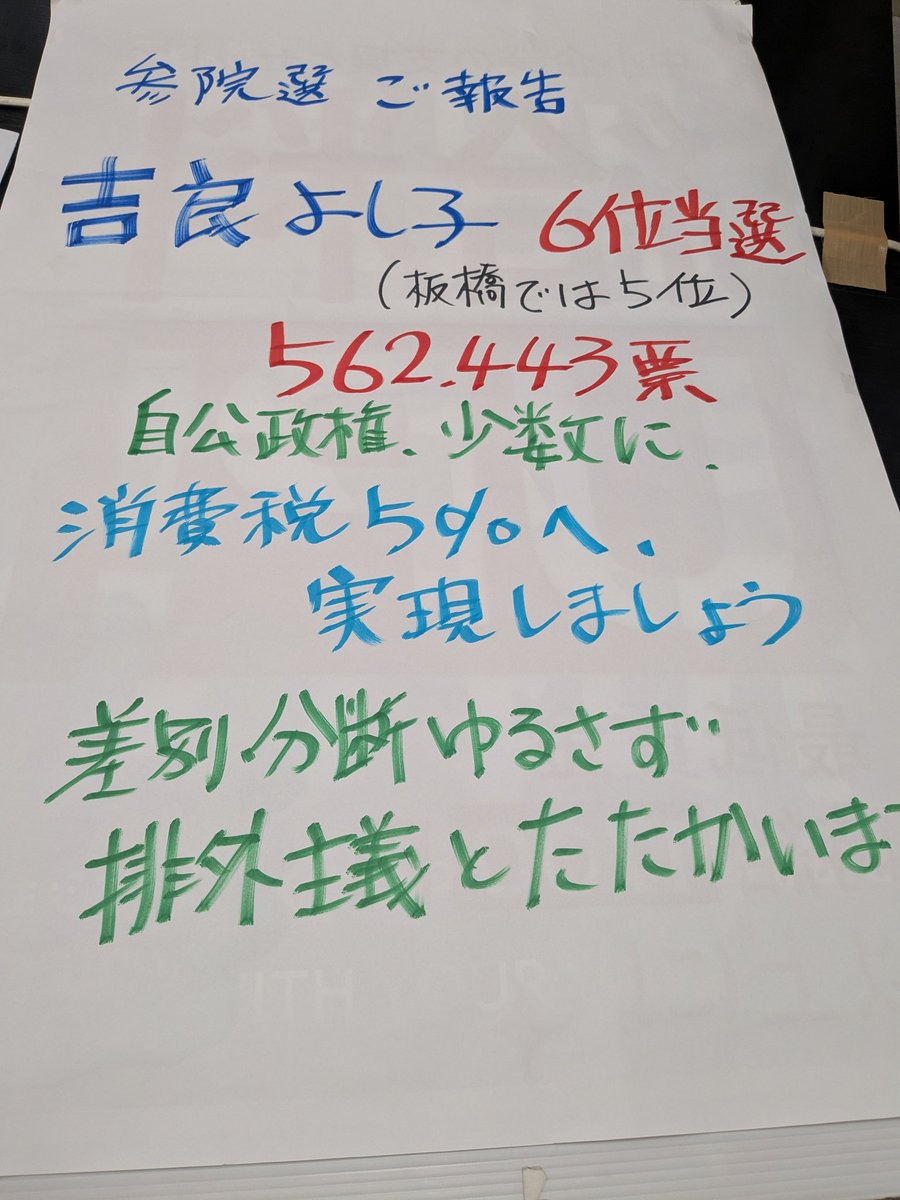 参院選 ご報告
吉良よし子 6位当選
(板橋では5位)
562.443票
自公政権、少数に、
消費税5%へ、
実現しましょう
差別、分断ゆるさず
排外主義とたたかいます